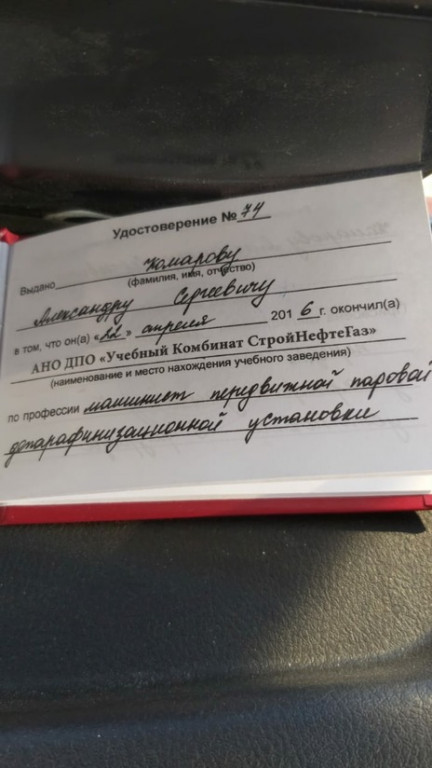 Удостоверение № 74
Выдано Комарову
(фамилия, имя, отчество)
Александру Сергеевичу
в том, что он(а) «22» апреля 2016 г. окончил(а)
АНО ДПО «Учебный Комбинат СтройНефтеГаз»
(наименование и место нахождения учебного заведения)
по профессии машинист передвижной паровой
депарафинизационной установки